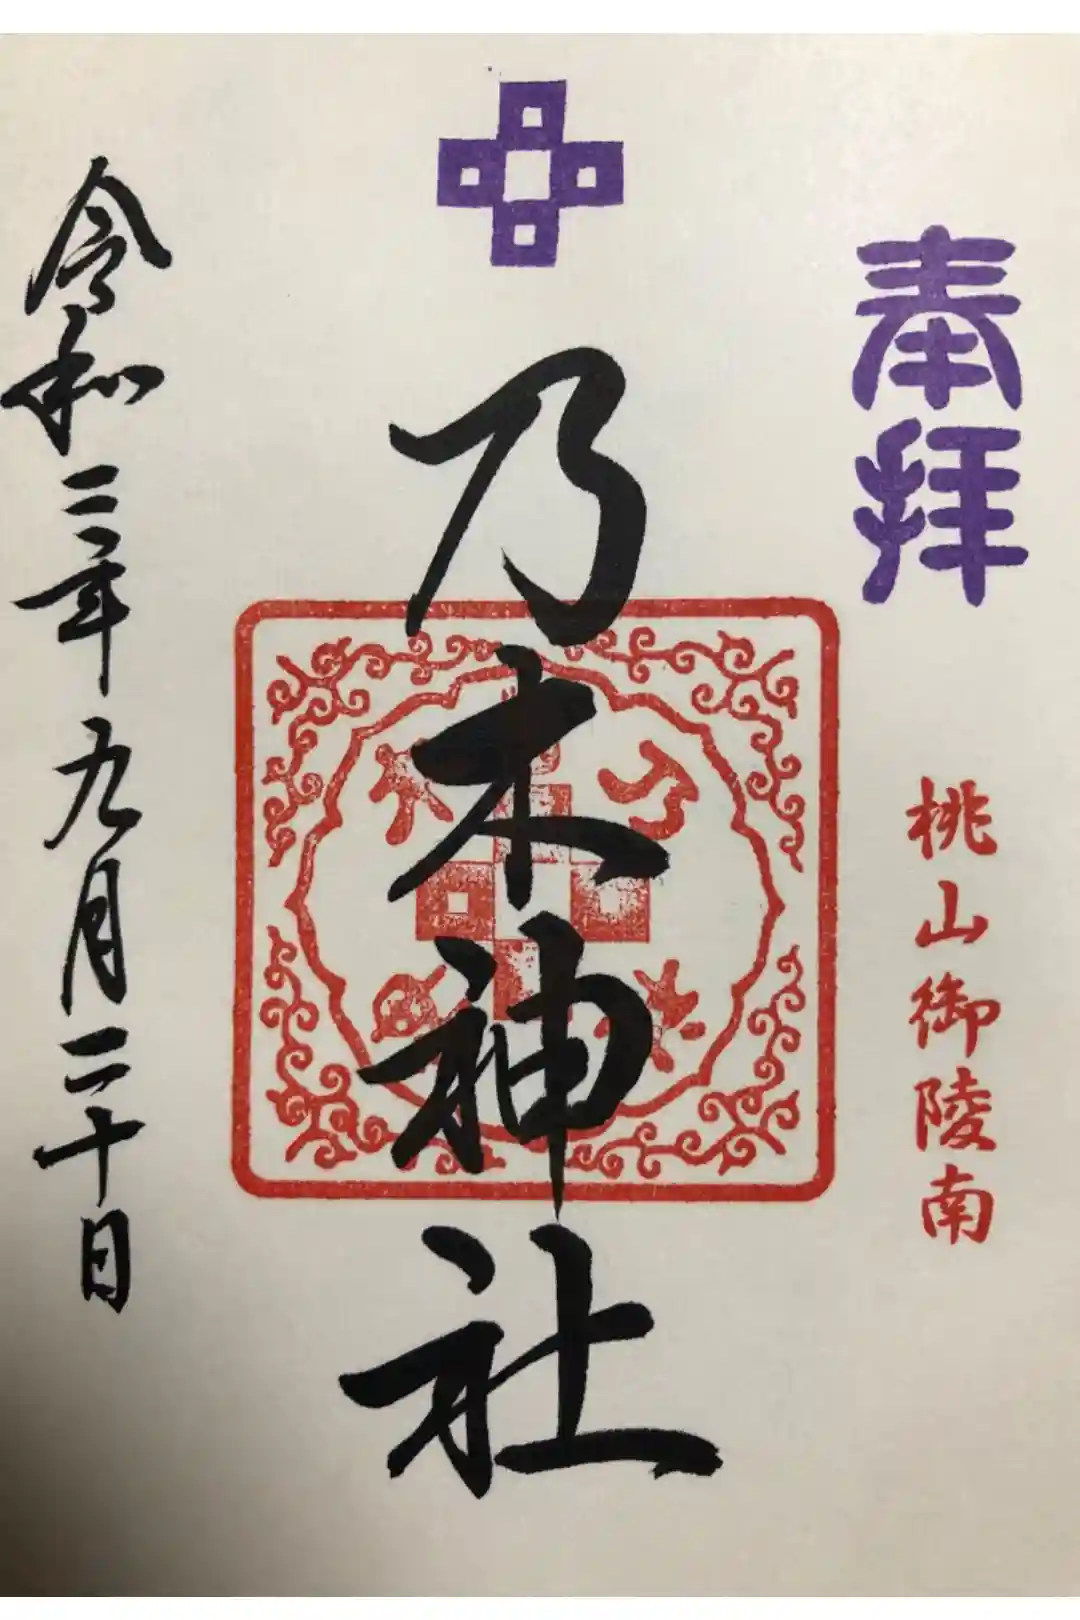 奉拝
桃山御陵南
乃木神社
乃木
令和二年九月二十日